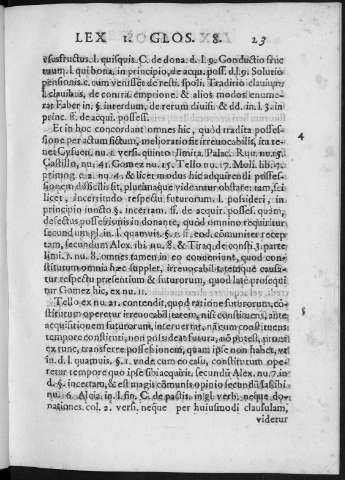 LEX 1. GLOS. 8. 23
vsusfructus. l. quisquis. C. de dona. d. l. 9. Conductio fruc
tuum. l. qui bona, in principio, de acqu. poss. d. l. 9. Solutio
pensionis. c. cum venisset de resti. spoli. Traditio clauium
l. clauibus, de contra. emptione. & alios modos enume-
rat Faber in. §. interdum, de rerum diuisi. & dd. in. l. 3. in
princ. ff. de acqui. possess.
Et in hoc concordant omnes hic, quòd tradita possess- 4
sione per actum fictum, melioratio fit irreuocabilis, ita te-
net Cyfuen. nu. 2. versi. quinto limita. Palac. Ruu. nu. 15.
Castillo, nu. 41. Gomez nu. 25. Tello nu. 17. Moli. lib. 4.
primog. c. 2. nu. 4. & licet modus hic adquirendi posses-
sionem difficilis sit, plurimaque videantur obstare: tam, sci
licet, incertitudo respectu futurorum. l. possideri, in
principio iuncto §. incertam. ff. de acquir. posses. quàm,
defectus possessionis in donante, quòd omnino requiritur
secundum gl. in. l. quamuis. §. 1. ff. eod. cõmuniter recep
tam, secundum Alex. ibi nu. 8. & Tiraq. de consti. 3. parte
limit. 1. nu. 8. omnes tamen in eo conueniunt, quod con-
stitutum omnia hæc supplet, irreuocabilitatemque causa-
tur respectu præsentium & futurorum, quod late prosequi
tur Gomez hic, ex nu. 21.
Tello ex nu. 21. contendit, quod ratione futurorum, cõ- 5
stitutum operetur irreuocabilitatem, nisi constituens, ante
acquisitionem futurorum, interuertat, nã cum constituens
tempore constituti, non possideat futura, nõ potest, prout
ex tunc, transferre possessionem, quam ipse non habet, vt
in. d. l. quamuis. §. 1. vnde cum eo casu, constitutum ope-
retur tempore quo ipse sibi acquirit. secundũ Alex. nu. 7. in
d. §. incertam, & est magis cõmunis opinio secundũ Iaf. ibi
nu. 6. Alcia. in. l. fin. C. de pactis. in gl. verb. neque do-
nationes. col. 2. versi. neque per huiusmodi clausulam,
videtur